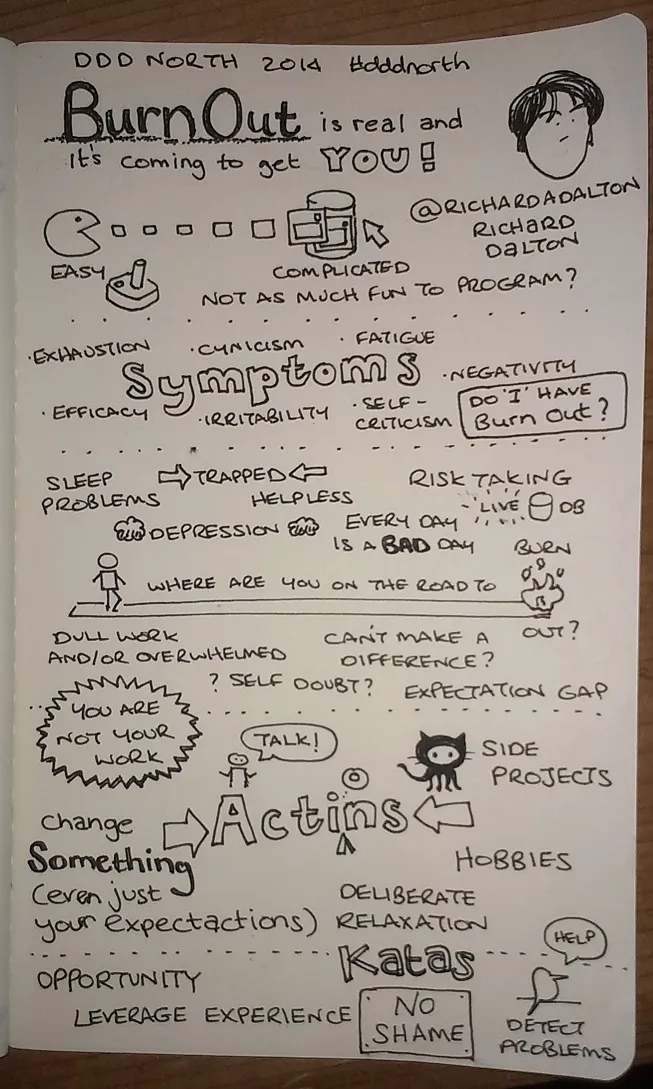 DDD NORTH 2014 #dddnorth
BurnOut is real and
it's coming to get YOU!
@RICHARDADALTON
RICHARD
DALTON
EASY
COMPLICATED
NOT AS MUCH FUN TO PROGRAM?
·EXHAUSTION ·CYNICISM ·FATIGUE
Symptoms ·NEGATIVITY
·EFFICACY ·IRRITABILITY ·SELF-
CRITICISM
DO 'I' HAVE
Burn Out?
SLEEP
PROBLEMS
TRAPPED
HELPLESS
RISK TAKING
LIVE DB
DEPRESSION
EVERY DAY
IS A BAD DAY
WHERE ARE YOU ON THE ROAD TO
BURN
OUT?
DULL WORK
AND/OR OVERWHELMED
CAN'T MAKE A
DIFFERENCE?
? SELF DOUBT? EXPECTATION GAP
YOU ARE
NOT YOUR
WORK
TALK!
SIDE
PROJECTS
Actins
o
change
Something
(even just
your expectactions)
HOBBIES
DELIBERATE
RELAXATION
Katas
HELP
OPPORTUNITY
LEVERAGE EXPERIENCE
NO
SHAME
DETECT
PROBLEMS